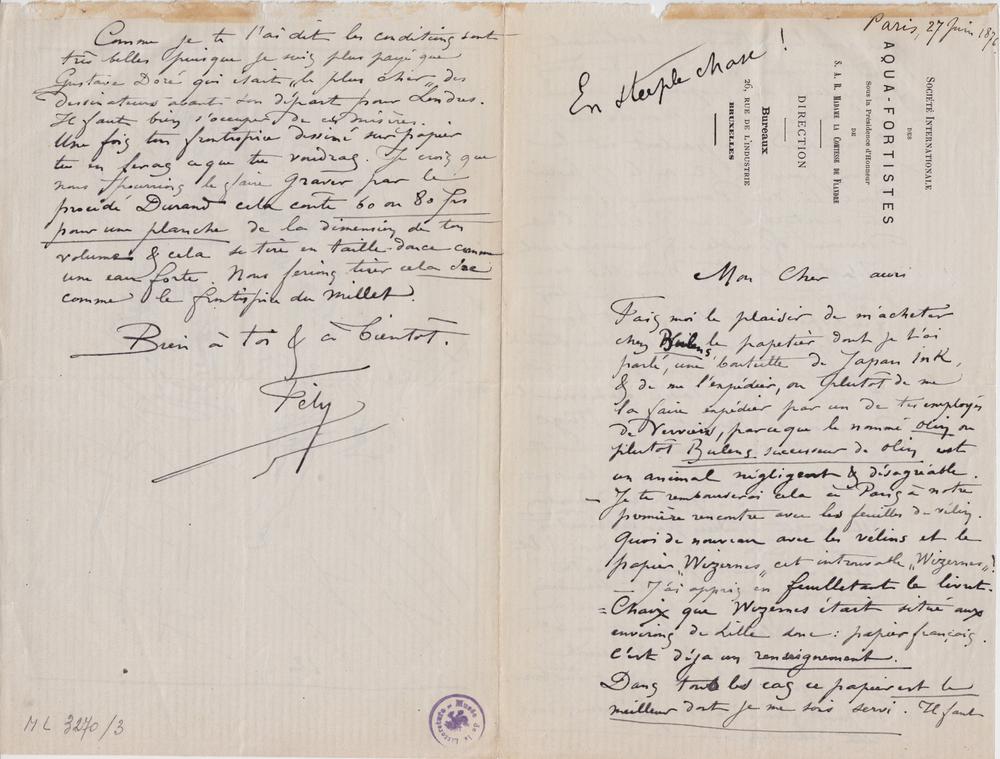 Paris, 27 Juin 187
SOCIÉTÉ INTERNATIONALE
DES
AQUA-FORTISTES
Sous la Présidence d'Honneur
DE
S. A. R. MADAME LA COMTESSE DE FLANDRE
DIRECTION
Bureaux
26, RUE DE L'INDUSTRIE
BRUXELLES
En steeple chase !
Mon Cher ami
Fais moi le plaisir de m'acheter
chez Bulens le papetier dont je t'ai
parlé, une bouteille de Japan Ink,
& de me l'expédier, ou plutôt de me
la faire expédier par un de tes employés
de Verviers, parceque le nommé Olin ou
plutôt Bulens successeur de Olin est
un animal négligent & désagréable.
– Je te rembourserai cela à Paris à notre
première rencontre avec les feuilles de vélin.
Quoi de nouveau avec les vélins et le
papier „Wizernes„ cet introuvable „Wizernes„!
– J'ai appris en feuilletant le livret-
=Chaix que Wizernes était situé aux
environs de Lille donc : papier français.
C'est déja un renseignement.
Dans tous les cas ce papier est le
meilleur dont je me sois servi. Il faut
Comme je te l'ai dit les conditions sont
très belles puisque je suis plus payé que
Gustave Doré qui était „le plus cher„ des
dessinateurs avant son départ pour Londres.
Il faut bien s'occuper de ces misères.
Une fois ton frontispice dessiné sur papier
tu en feras ce que tu voudras. Je crois que
nous pourrions le faire graver par le
procédé Durand cela coute 60 ou 80 frs
pour une planche de la dimension de ton
volume & cela se tire en taille-douce comme
une eau forte. Nous ferions tirer cela
comme le frontispice du Millet.
Bien à toi & à bientôt.
Fély
ML 3270/3
Musée de la Littérature